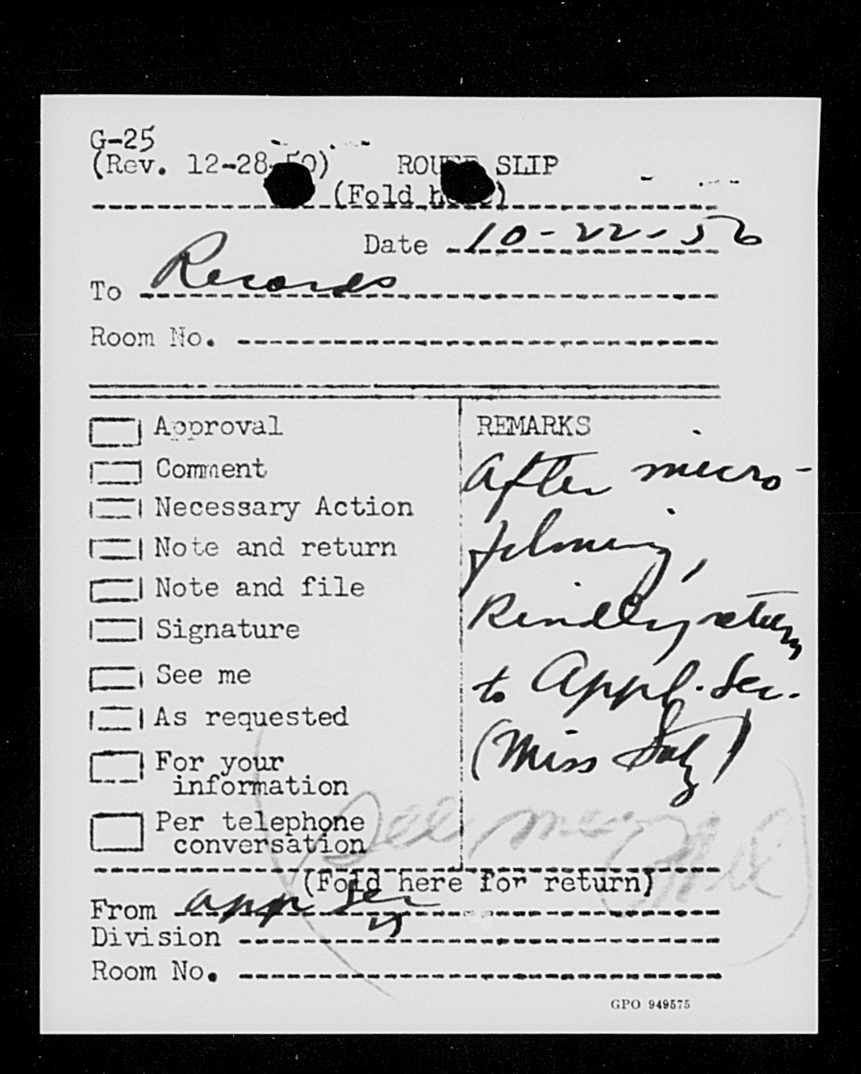 G-25
(Rev. 12-28-50) ROUTE SLIP
(Fold here)
Date 10-22-56
To Records
Room No.
Approval
Comment
Necessary Action
Note and return
Note and file
Signature
See me
As requested
For your
information
Per telephone
conversation
REMARKS
After micro-
filming,
Kindly return
to Appl. Sec.
(Miss
See me
(Fold here for return)
From App Sec
Division
Room No.
GPO 949575